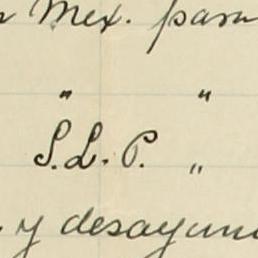 Mex. para
" "
S.L.P. "
y desayuno